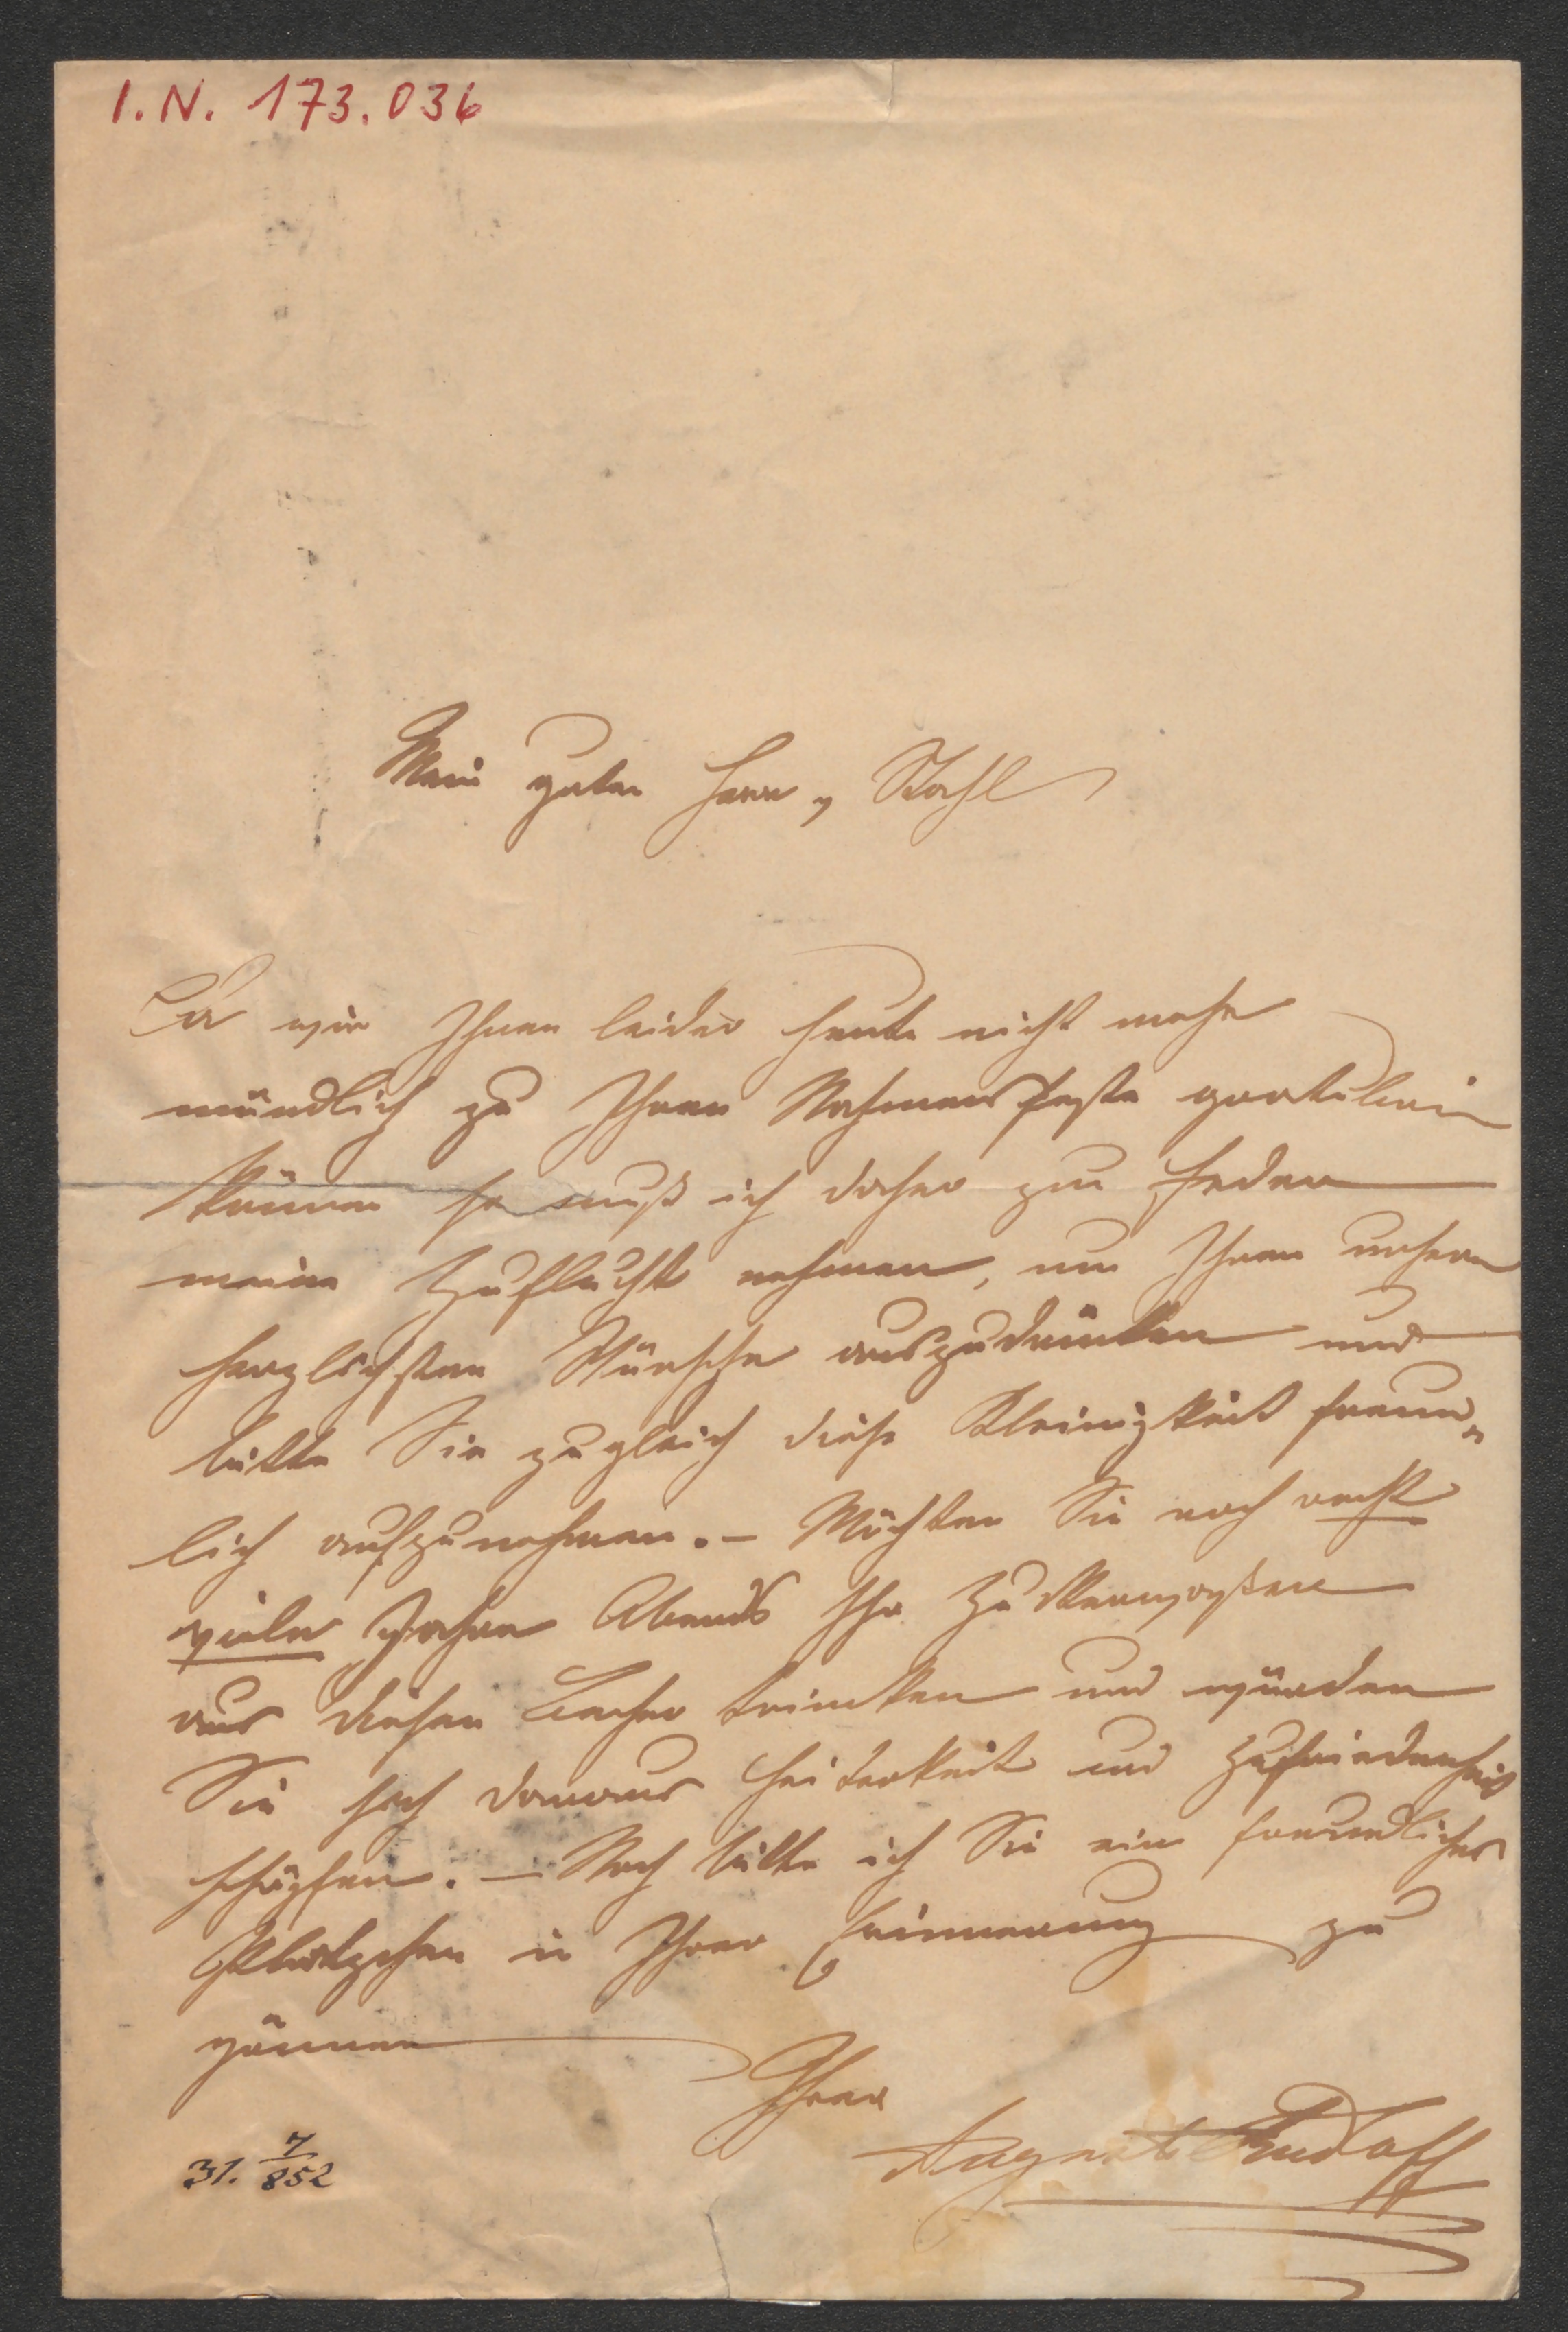 I.N. 173.036
Mein guter Herr v Stahl
Da wir Ihnen leider heute nicht mehr
mündlich zu Ihrem Nahmensfeste gratulieren
können so muß ich daher zur Feder
meine Zuflucht nehmen, um Ihnen unsern
herzlichsten Wünsche auszudrücken und
bitte Sie zugleich diese Kleinigkeit freun„
lich aufzunehmen. – Möchten Sie noch recht
viele Jahre Abends Ihr
aus diesen Becher trincken und würden
Sie sich daraus Heiterkeit und Zufriedenheit
schöpfen. – Noch bitte ich Sie ein freundliches
Plätzchen in Ihrer Erinnerung zu
gönnen
Ihrer
31. 7/852